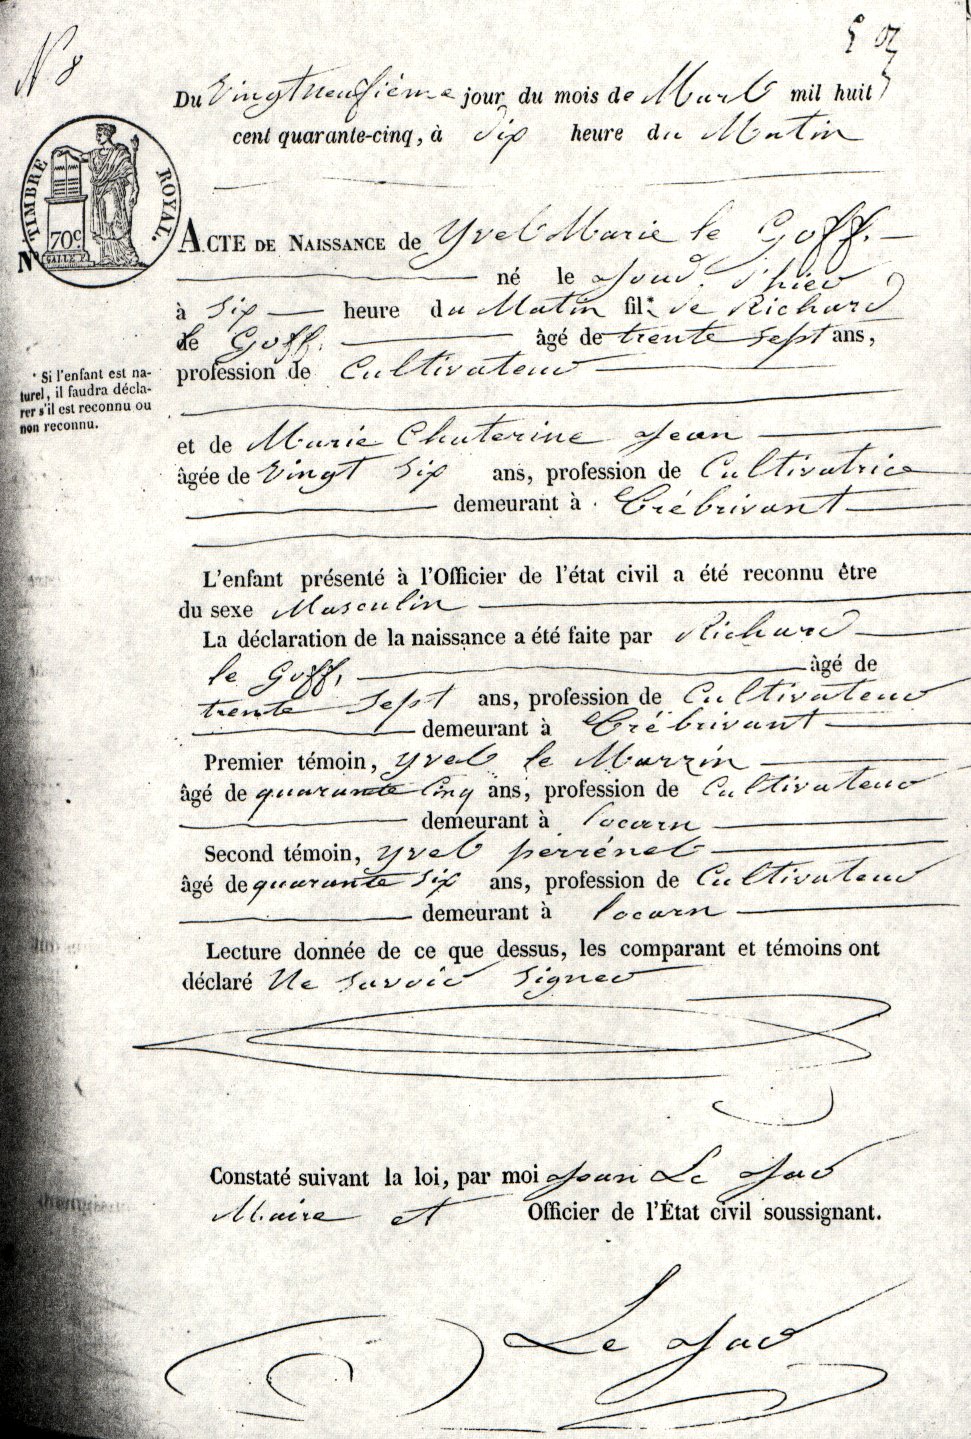 N 8
Du Vingt neufième jour du mois de Mars mil huit
cent quarante-cinq, à dix heure du Matin
TIMBRE ROYAL.
70c
No
ACTE DE NAISSANCE de Yves Marie le Goff.
né le jour d'hier
à six heure du Matin fil* de Richard
le Goff. âgé de trente sept ans,
profession de Cultivateur
* Si l'enfant est na-
turel, il faudra décla-
rer s'il est reconnu ou
non reconnu.
et de Marie Chaterine Jean
âgée de Vingt six ans, profession de Cultivatrice
demeurant à Trébrivant
L'enfant présenté à l'Officier de l'état civil a été reconnu être
du sexe Masculin
La déclaration de la naissance a été faite par Richard
le Goff, âgé de
trente sept ans, profession de Cultivateur
demeurant à Trébrivant
Premier témoin, yves le Marrin
âgé de quarante Cinq ans, profession de Cultivateur
demeurant à locarn
Second témoin, yves perrénes
âgé de quarante six ans, profession de Cultivateur
demeurant à locarn
Lecture donnée de ce que dessus, les comparant et témoins ont
déclaré Ne savoir signer
Constaté suivant la loi, par moi Jean Le Jar
Maire et Officier de l'État civil soussignant.
Le Jar